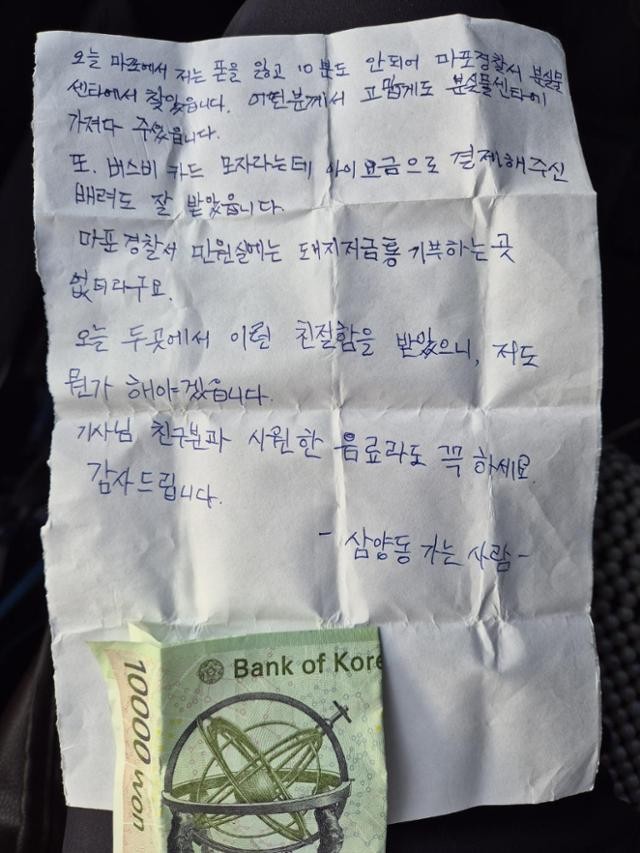 오늘 마포에서 저는 폰을 잃고 10분도 안되어 마포경찰서 분실물
센타에서 찾았습니다. 어떤분께서 고맙게도 분실물센타에
가져다 주셨습니다.
또. 버스비 카드 모자라는데 아이요금으로 결제해주신
배려도 잘 받았습니다.
마포경찰서 민원실에는 돼지저금통 기부하는 곳
없더라구요.
오늘 두곳에서 이런 친절함을 받았으니, 저도
뭔가 해야겠습니다.
기사님 친구분과 시원한 음료라도 꼭 하세요.
감사드립니다.
- 삼양동 가는 사람 -
Bank of Kore
10000 won